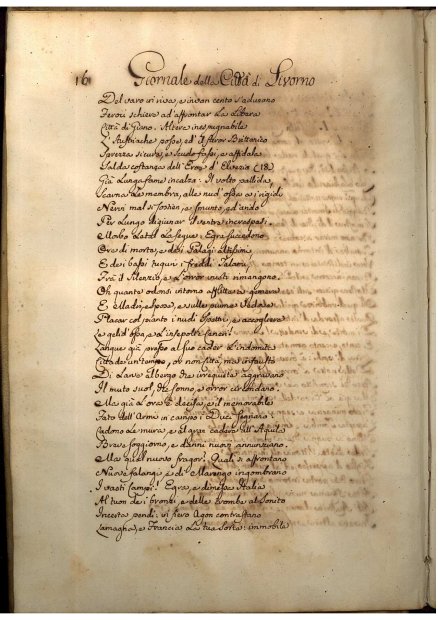 16 Giornale della Città di Livorno
Del varo in riva, e invan cento s'adunano
Feroci schiere ad' affrontar La Libera
Città di Giano. Altera inespugnabile
L'Austriache posse, ed il furor Brittanico
sicura, e scudo fassi, e
Salda costanza dell' Eroe d' Elvezio (18)
Già Lunga fame incalza: il volto pallida,
Scarna Le membra, alle nud' ossa e i rigidi
Nervi mal si sostien, e smunto, ed arido
Per Lungo digiunar il ventre
Morbo Latal La segue: Egra succedono
Ore di morte, e dei Palagi Altissimi
E dei bassi tuguri i freddi Talami
Frà il Silenzio, e L'orror vuoti rimangono.
Oh quante odonsi intorno afflitte gemere
E Madri, e Spose, e sulle piume Vedove
Placar col pianto i nudi Spettri, e accogliere
Le gelid' ossa, e L'insepolte ceneri!
Langue quì presso al suo cader L'indomita
Città un tempo, or non Città, ma infausto
Di Larve albergo che irrequiete aggravano
Il muto suol, che sonno, e orror circondano.
Ma già L'ora è decisa, e il memorabile
Fato dell' Armi in campo i Duci segnano:
Cadono Le mura, e al gran cadere all' Aquile
Breve soggiorno, e danni nuovi annunziano.
Ma qual nuovo fragor! Quali s' affrontano
Nuove falangi, e di Marengo ingombrano
I vasti Campi! Egra, e dimessa Italia
Al tuon dei bronzi, e delle trombe al sonito
Incerta pendi: in fiero Agon contrastano
Lamagna, e Francia La tua Sorte: immobile